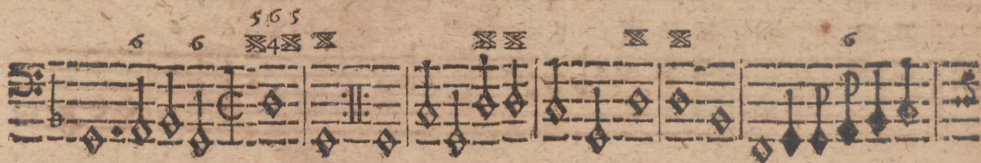 5 6 5
6 6 4 6